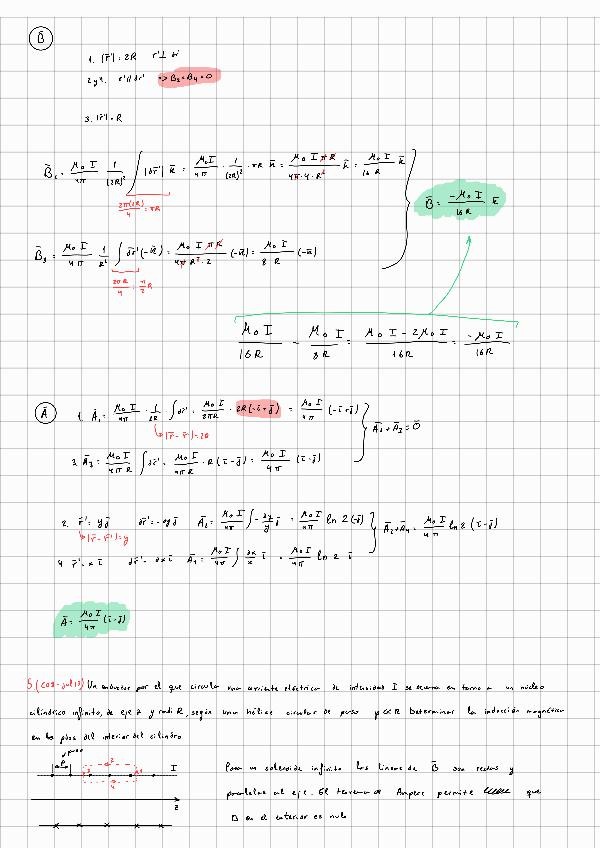 B̄
1. |r̄'| = 2R   r' ⊥ dr'
2 y 4. r' ∥ dr' => B₂ = B₄ = 0
3. |r̄'| = R
B̄₁ = μ₀ I / 4π · 1/(2R)² ∫ |dr̄'| k̄ = μ₀ I / 4π · 1/(2R)² · πR k̄ = μ₀ I π R / 4π · 4 · R² k̄ = μ₀ I / 16 R k̄
2π(2R)/4 = πR
B̄ = -μ₀ I / 16 R k̄
B̄₃ = μ₀ I / 4π · 1/R² ∫ dr̄' (-k̄) = μ₀ I π R / 4π R² · 2 (-k̄) = μ₀ I / 8 R (-k̄)
2πR/4 = π/2 R
μ₀ I / 16 R - μ₀ I / 8 R = μ₀ I - 2 μ₀ I / 16 R = -μ₀ I / 16 R
Ā
1. Ā₁ = μ₀ I / 4π · 1/2R · ∫ dr̄' = μ₀ I / 8πR · 2R(-ī+j̄) = μ₀ I / 4π (-ī+j̄)
|r̄-r̄'| = 2R
Ā₁ + Ā₃ = 0̄
3. Ā₃ = μ₀ I / 4πR ∫ dr̄' = μ₀ I / 4πR · R (ī-j̄) = μ₀ I / 4π (ī-j̄)
2. r̄' = y j̄   dr̄' = -dy j̄   Ā₂ = μ₀ I / 4π ∫ -dy/y j̄ = μ₀ I / 4π ln 2 (-j̄)
|r̄-r̄'| = y
Ā₂ + Ā₄ = μ₀ I / 4π ln 2 (ī-j̄)
4. r̄' = x ī   dr̄' = dx ī   Ā₄ = μ₀ I / 4π ∫ dx/x ī = μ₀ I / 4π ln 2 ī
Ā = μ₀ I / 4π (ī-j̄)
Un conductor por el que circula una corriente eléctrica de intensidad I se arrolla en torno a un núcleo
cilíndrico infinito, de eje z y radio R, según una hélice circular de paso p<<R. Determinar la inducción magnética
en los ptos del interior del cilindro
I
z
Para un solenoide infinito las líneas de B̄ son rectas y
paralelas al eje. El teorema de Ampere permite que
B en el exterior es nulo